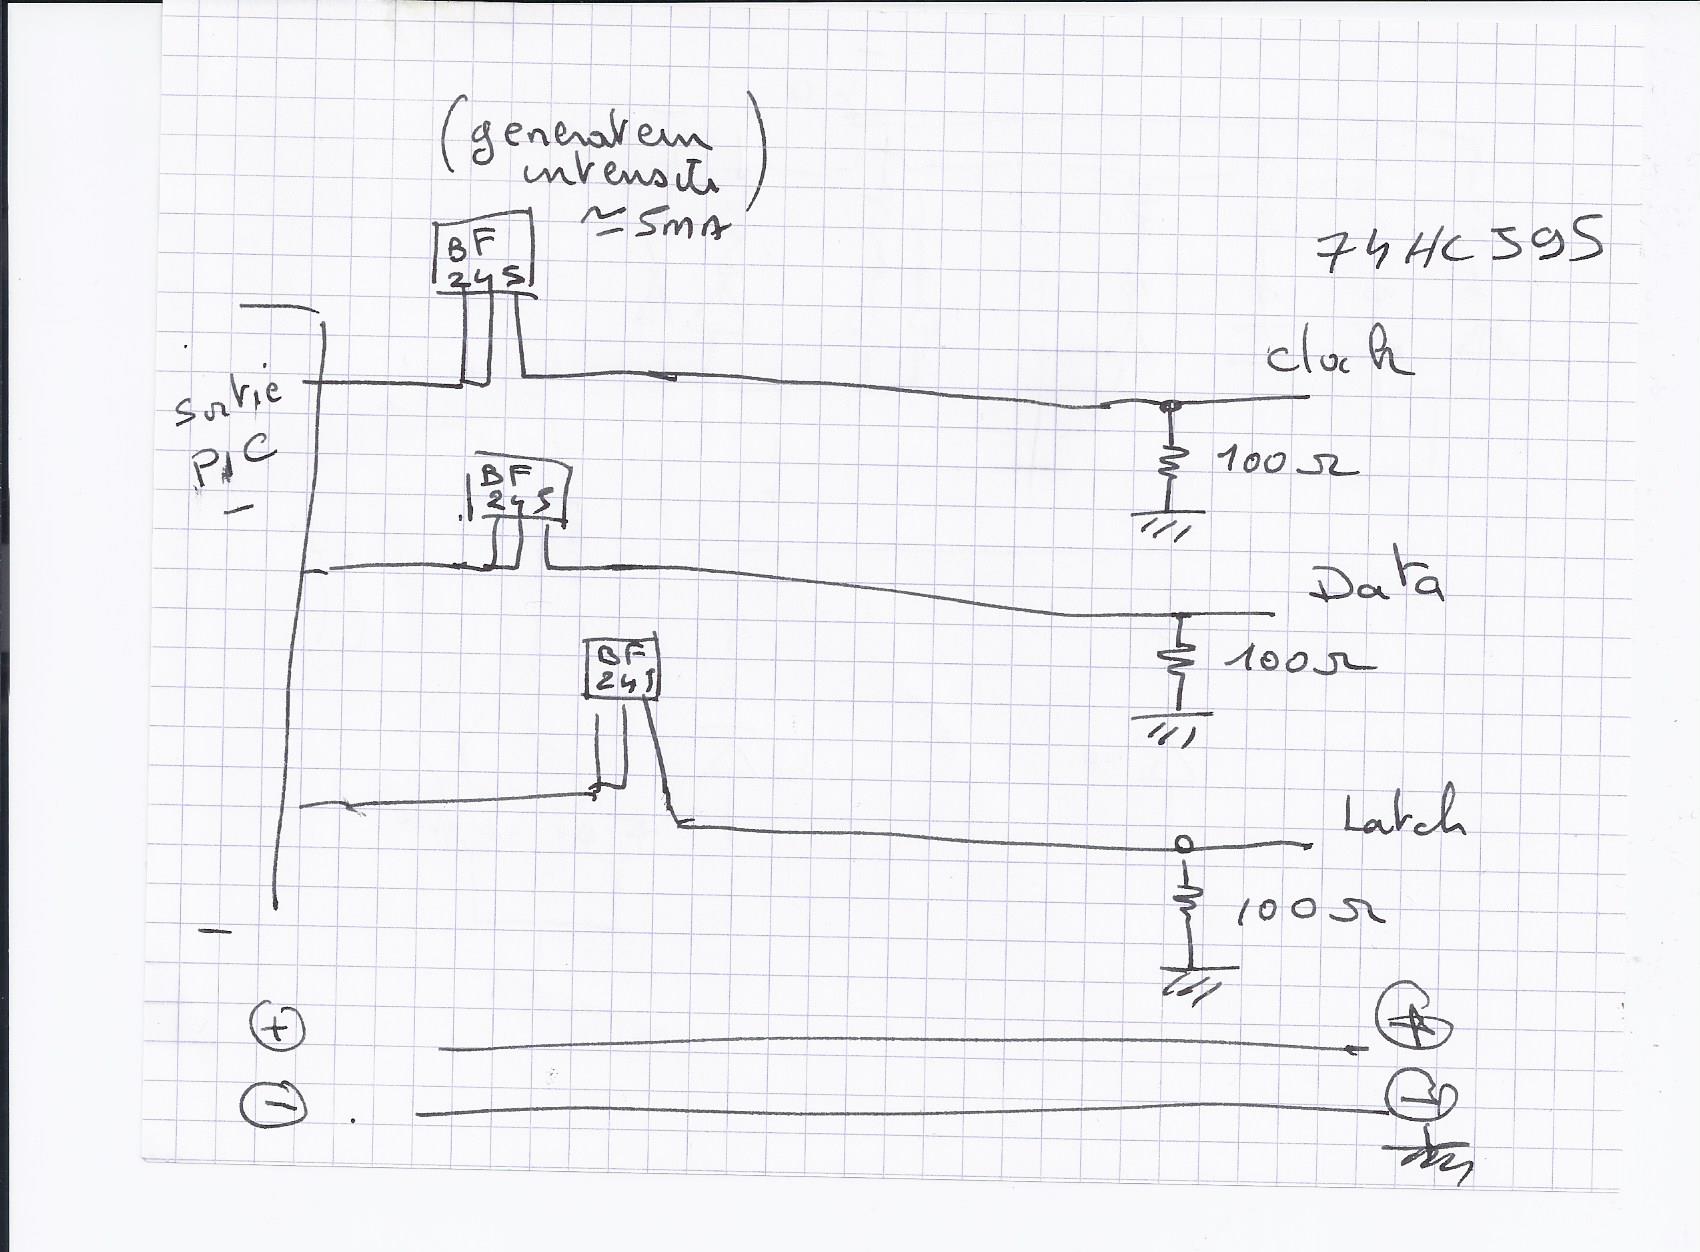 (generateur
intensité)
≃ 5mA
BF
245
74HC595
clock
Sortie
PIC
100Ω
BF
245
Data
100Ω
BF
245
Latch
100Ω
+
+
-
-